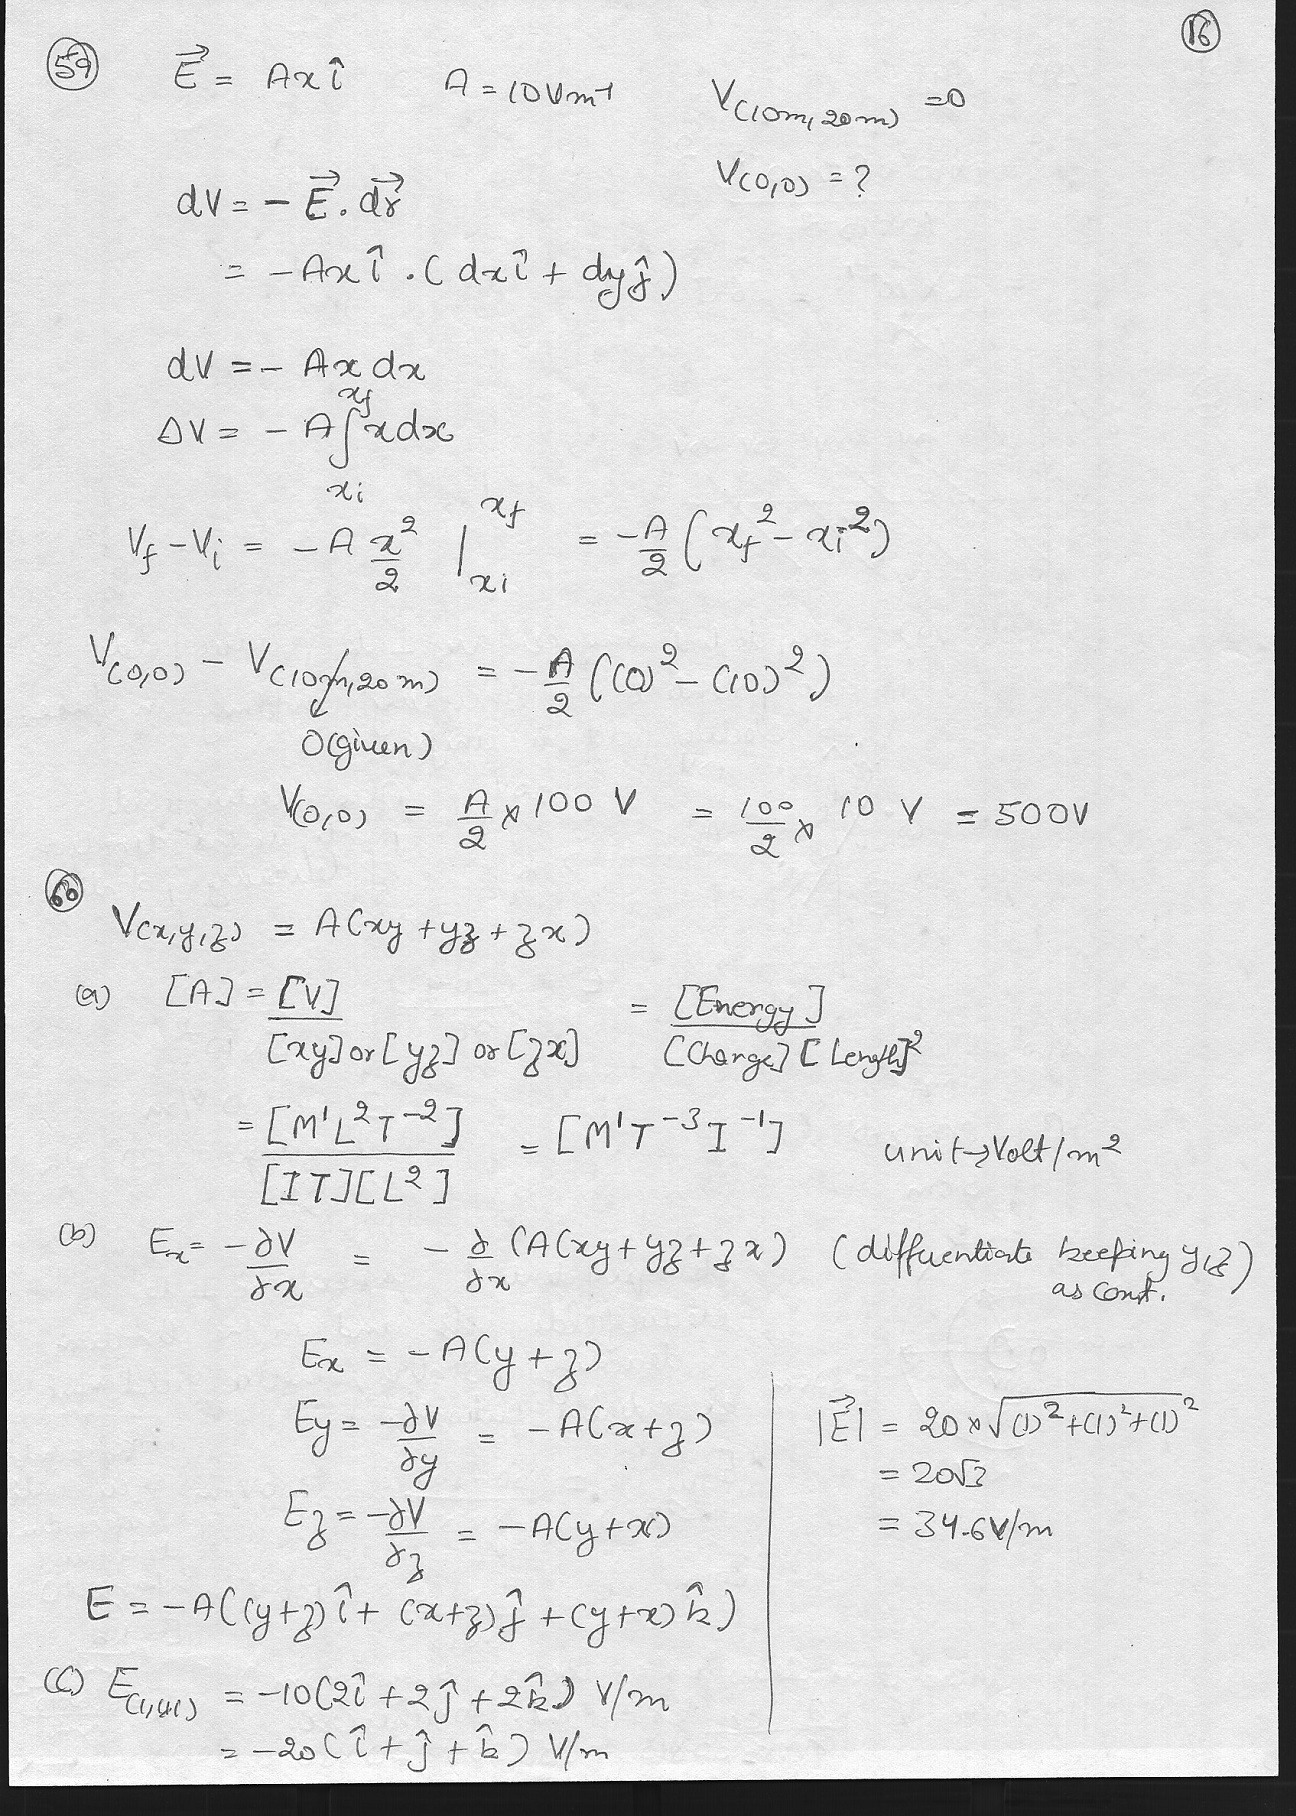 16
59 E⃗ = Axî A = 10Vm⁻¹ V(10m, 20m) = 0
V(0,0) = ?
dV = - E⃗ . dr⃗
= - Axî . (dxî + dyĵ)
dV = - Ax dx
ΔV = - A ∫_{xi}^{xf} x dx
Vf - Vi = - A x²/2 |_{xi}^{xf} = -A/2 (xf² - xi²)
V(0,0) - V(10m,20m) = - A/2 ((0)² - (10)²)
0(given)
V(0,0) = A/2 × 100 V = 100/2 × 10 V = 500V
60
V(x,y,z) = A(xy + yz + zx)
(a) [A] = [V] / [xy] or [yz] or [zx] = [Energy] / [Charge] [Length]²
= [M¹L²T⁻²] / [IT][L²] = [M¹T⁻³I⁻¹] unit→Volt/m²
(b) Ex = -∂V/∂x = - ∂/∂x (A(xy + yz + zx) (diffuentiate keeping y,z)
as const.
Ex = - A(y + z)
Ey = -∂V/∂y = - A(x + z)
Ez = -∂V/∂z = -A(y + x)
E = -A((y+z)î + (x+z)ĵ + (y+x)k̂)
(c) E(1,1,1) = -10(2î + 2ĵ + 2k̂) V/m
= -20(î + ĵ + k̂) V/m
|E⃗| = 20 × √(1)² + (1)² + (1)²
= 20√3
= 34.6V/m